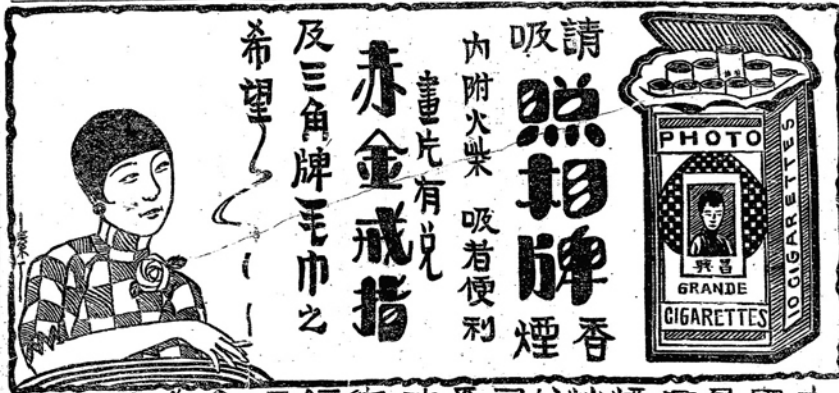 請吸
照相牌
香煙
內附火柴 吸者便利
畫片有兌
赤金戒指
及三角牌毛巾之
希望
PHOTO
興昌
GRANDE
CIGARETTES
10 CIGARETTES